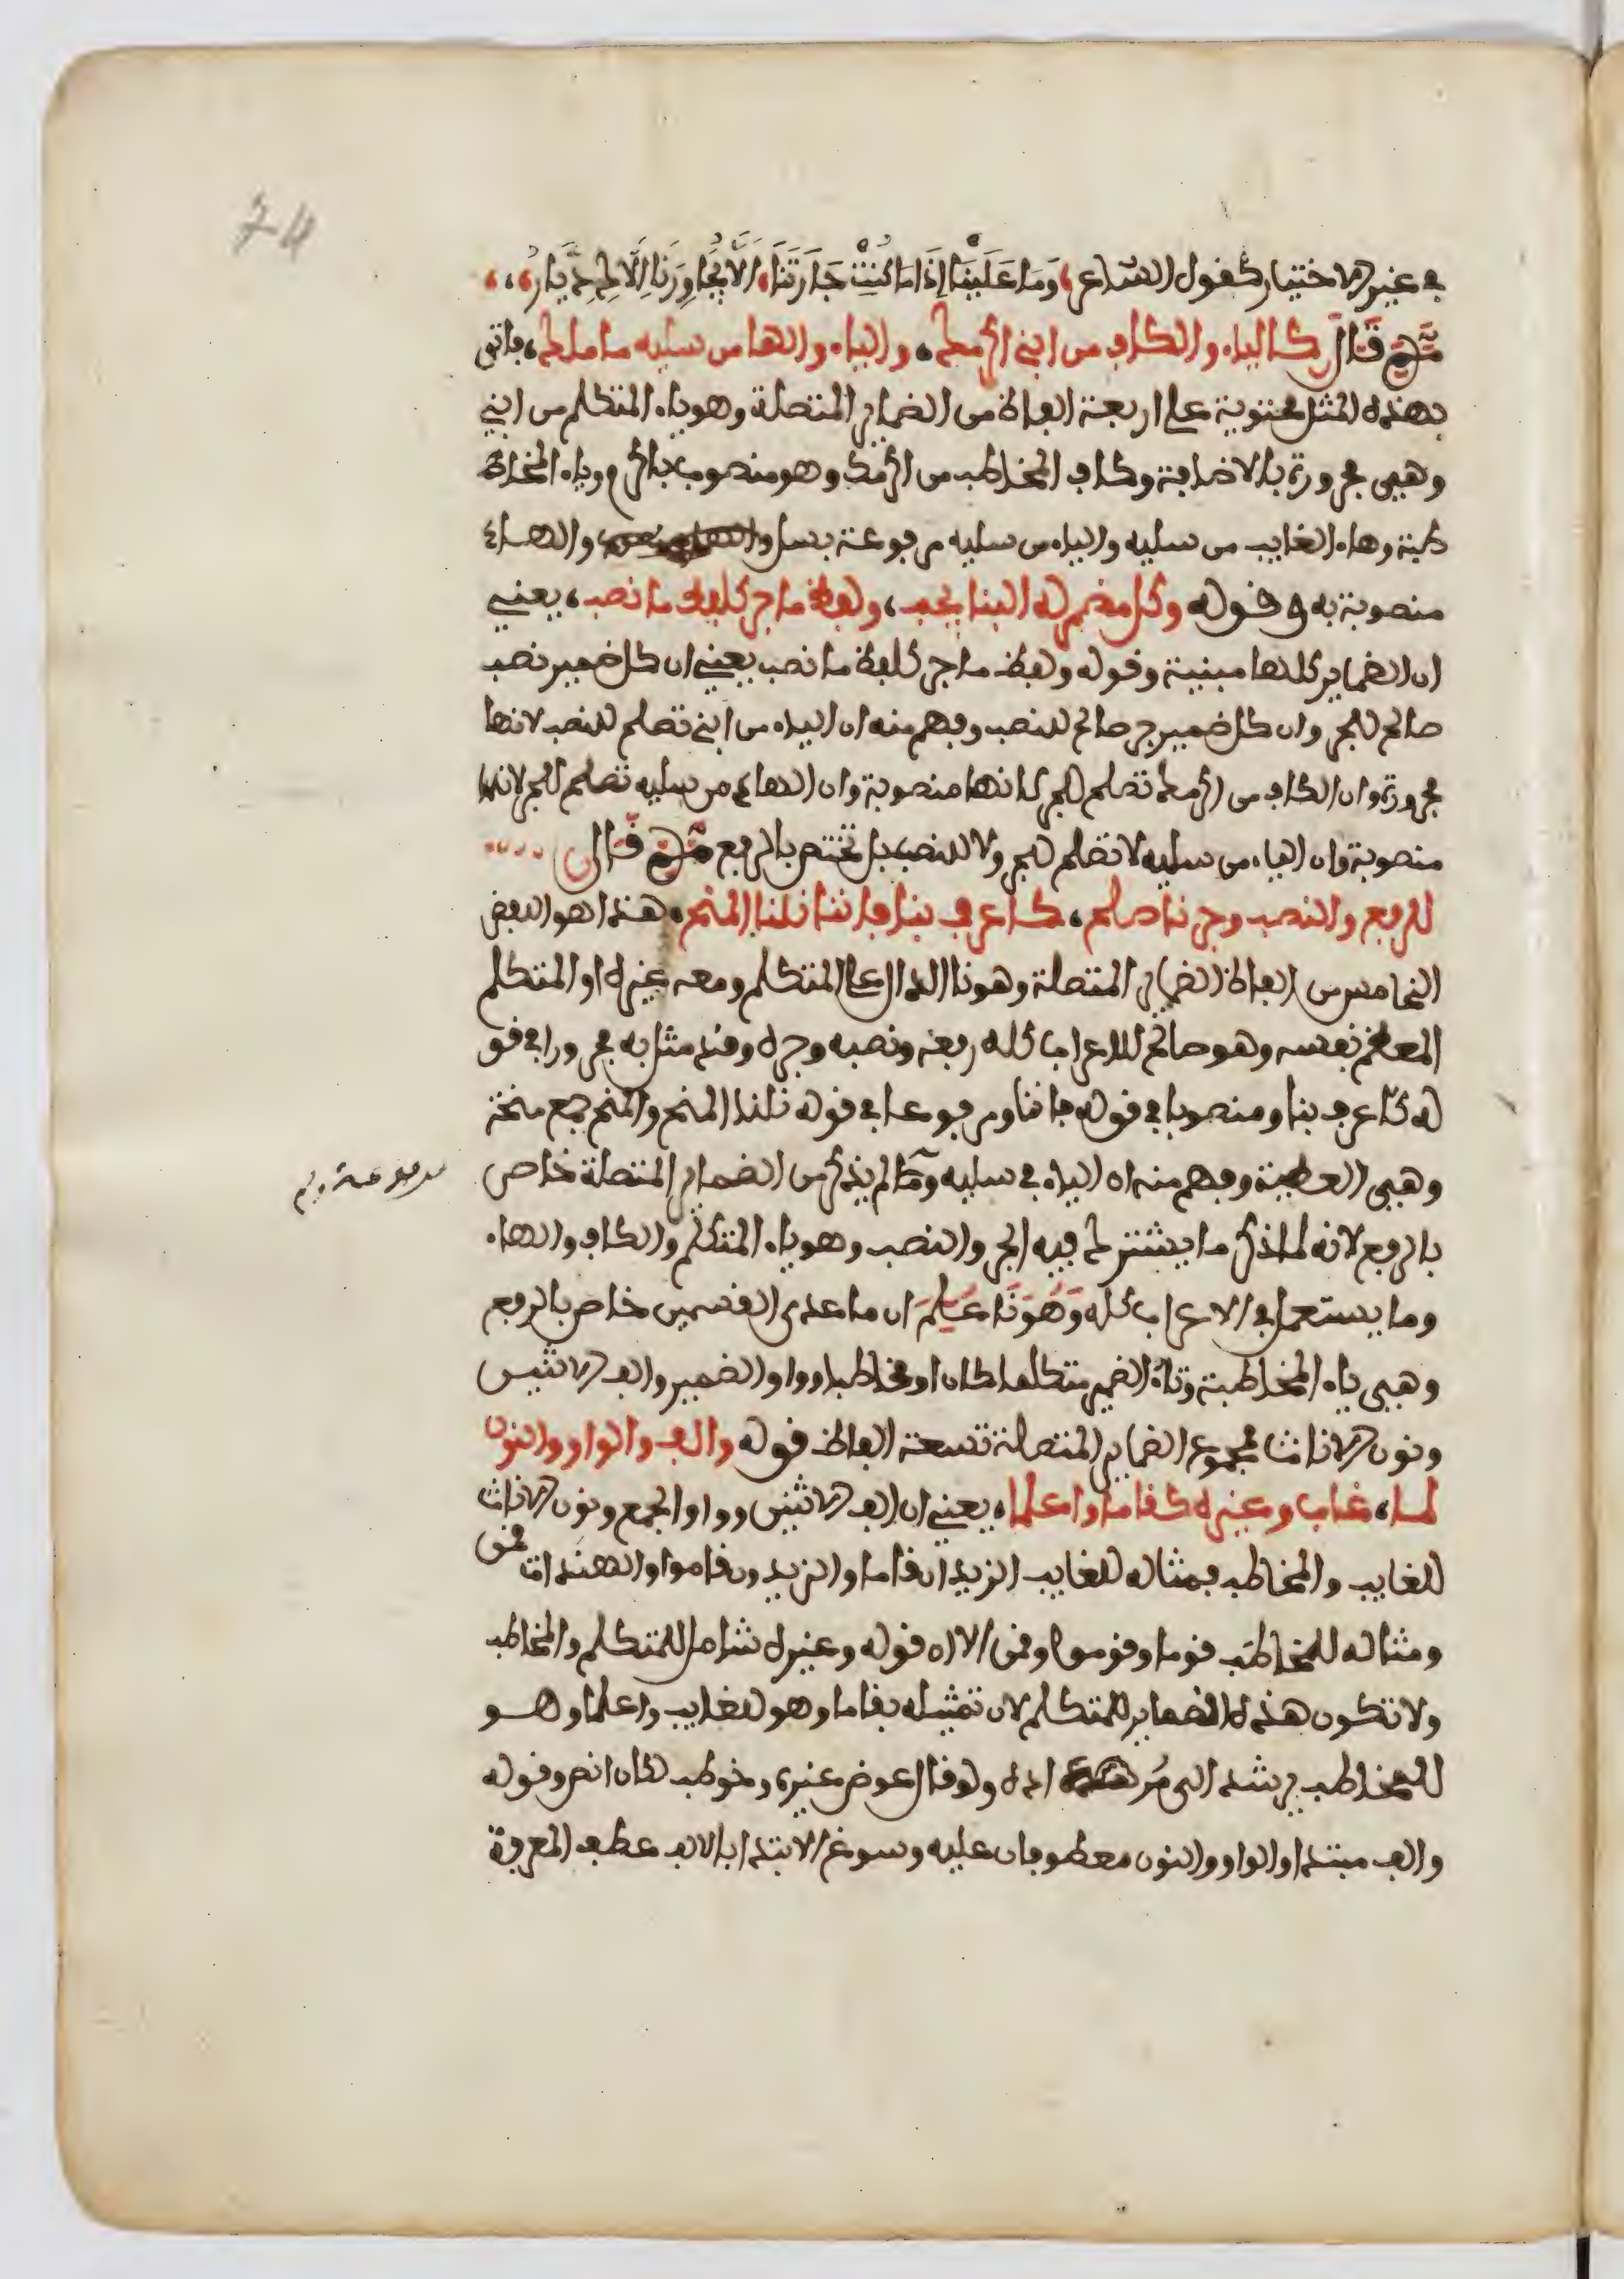 74
في غير الاختيار كقول الشاعر وَمَا عَلَيْنَا إِذَا مَا كُنْتِ جَارَتَنَا أَلَّا يُجَاوِرَنَا إِلَّاكِ دَيَّارُ
ثم قال كالياء والكاف من ابني اكرمك، والياء والها من سليه ما ملك، فاتى
بهذه المثل محتوية على اربعة الفاظ من الضماير المتصلة وهو ياء المتكلم من ابني
وهي مجرورة بالاضافة وكاف المخاطب من اكرمك وهو منصوب باكرم وياء المخا
طبة وهاء الغايب من سليه والياء من سليه مرفوعة بسل والهاء
منصوبة به وقوله وكل مضمر له البنا يجب، ولفظ ما جر كلفظ ما نصب، يعني
ان الضماير كلها مبنية وقوله ولفظ ما جر كلفظ ما نصب يعني ان كل ضمير نصب
صالح للجر وان كل ضمير جر صالح للنصب وفهم منه ان الياء من ابني تصلح للنصب لانها
مجرورة وان الكاف من اكرمك تصلح للجر لانها منصوبة وان الهاء من سليه تصلح للجر لانها
منصوبة وان الياء من سليه لا تصلح للجر ولا للنصب بل تختص بالرفع ثم قال
للرفع والنصب وجر نا صلح، كاعرف بنا فاننا نلنا المنح هذا هو اللفظ
الخامس من الفاظ الضماير المتصلة وهو نا الدال على المتكلم ومعه غيره او المتكلم
المعظم نفسه وهو صالح للاعراب كله رفعه ونصبه وجره وقد مثل به مجرورا في قو
له كاعرف بنا ومنصوبا في قوله فاننا ومرفوعا في قوله نلنا المنح والمنح جمع منحة
وهي العطية وفهم منه ان الياء في سليه وما لم يذكر من الضماير المتصلة خاص
بالرفع لانه لما ذكر ما يشترك فيه الجر والنصب وهو ياء المتكلم والكاف والهاء
وما يستعمل في الاعراب كله وَهُوَ نَا عُلِمَ ان ما عدى القسمين خاص بالرفع
وهي ياء المخاطبة وتاء الضمير متكلما كان او مخاطبا وواو الضمير والف الاثنين
ونون الاناث فمجموع الضماير المتصلة تسعة الفاظ قوله والف والواو والنون
لما، غاب وغيره كقاما واعلما، يعني ان الف الاثنين وواو الجمع ونون الاناث
للغايب والمخاطب فمثاله للغايب الزيدان قاما والزيدون قاموا والهندات قمن
ومثاله للمخاطب قوما وقوموا وقمن الا ان قوله وغيره شامل للمتكلم والمخاطب
ولا تكون هذه الضماير للمتكلم لان تمثيله بقاما وهو للغايب واعلما وهو
للمخاطب يرشد الى مراده ولو قال عوض غيره وخوطب لكان انص وقوله
والف مبتدا والواو والنون معطوفان عليه وسوغ الابتدا بالالف عطف المعرفة